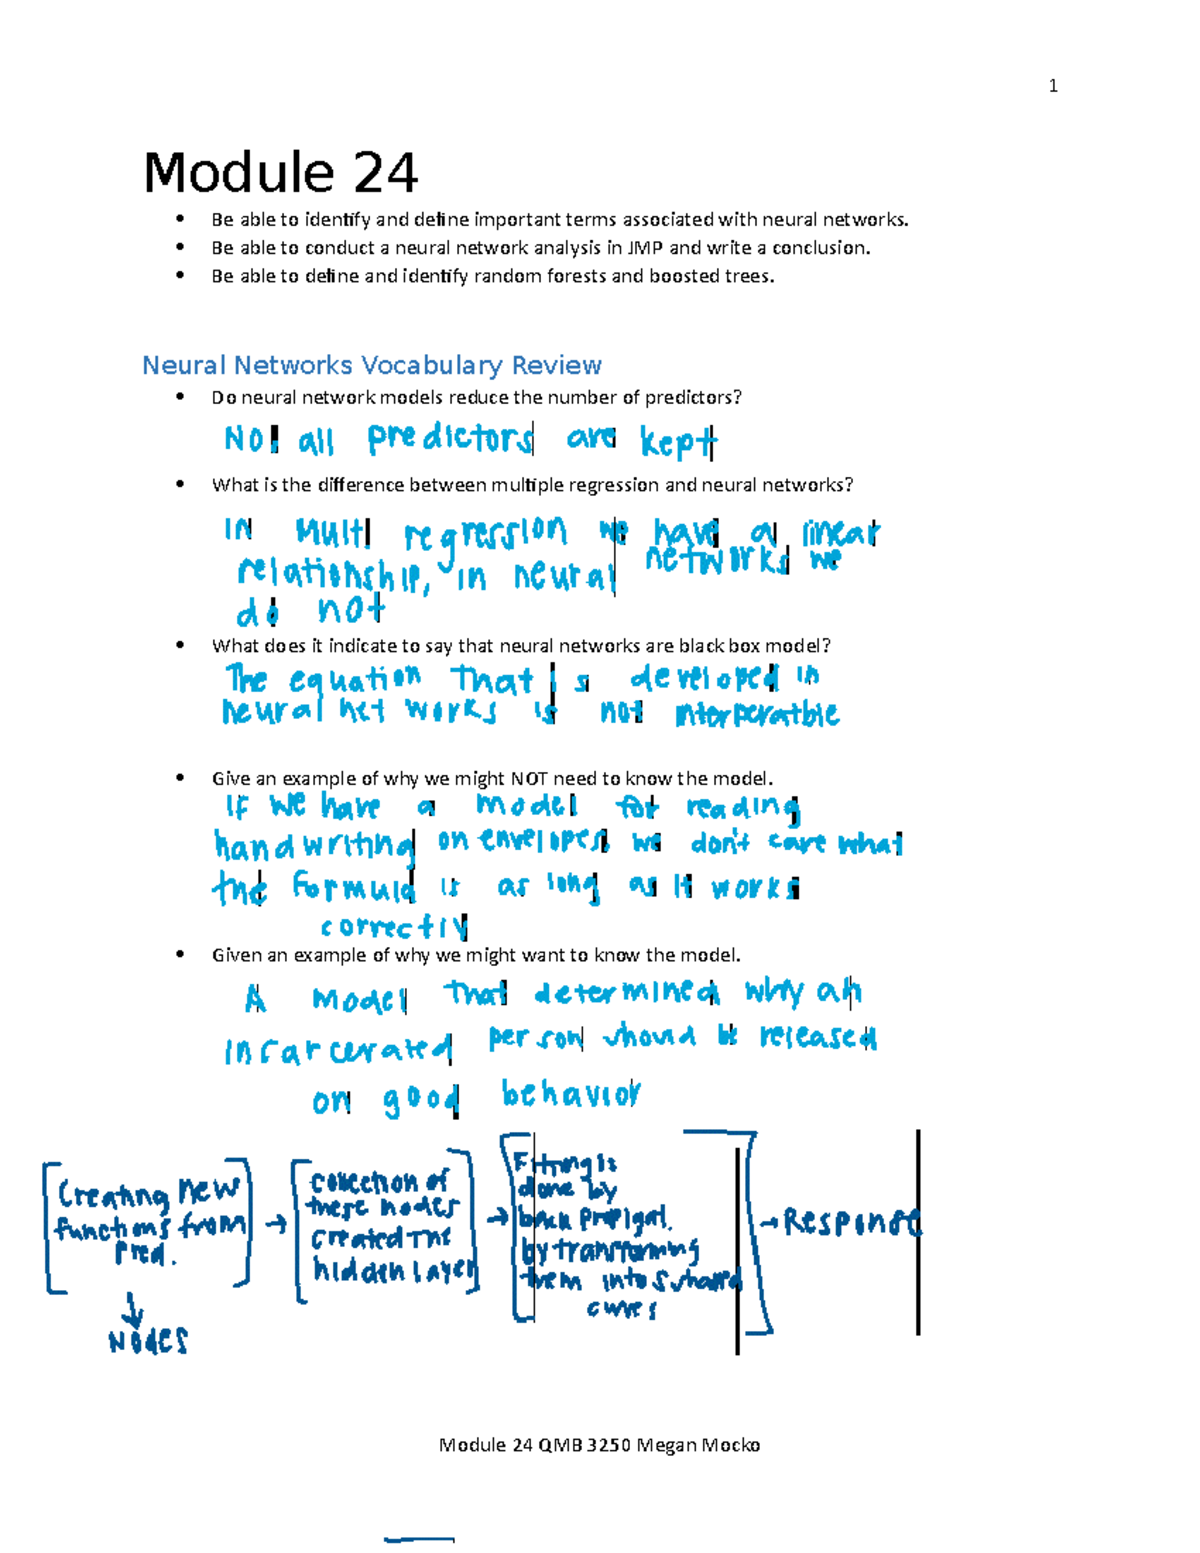 1
Module 24
• Be able to identify and define important terms associated with neural networks.
• Be able to conduct a neural network analysis in JMP and write a conclusion.
• Be able to define and identify random forests and boosted trees.
Neural Networks Vocabulary Review
• Do neural network models reduce the number of predictors?
No. all predictors are kept
• What is the difference between multiple regression and neural networks?
In Multi regression we have a linear
relationship, in neural networks we
do not
• What does it indicate to say that neural networks are black box model?
The equation that is developed in
neural networks is not interperatble
• Give an example of why we might NOT need to know the model.
If we have a model for reading
handwriting on envelopes, we don't care what
the formula is as long as it works
correctly
• Given an example of why we might want to know the model.
A model that determined why an
incarcerated person should be released
on good behavior
Creating new
functions from
pred.
→
collection of
these nodes
created the
hidden layer
→
Fitting is
done by
back propigat.
by transforming
them into S shaped
curves
→ Response
↓
Nodes
Module 24 QMB 3250 Megan Mocko